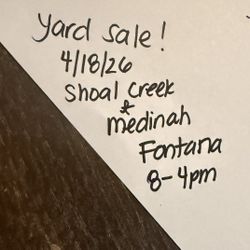 Yard Sale!
4/18/26
Shoal Creek
*
medinah
Fontana
8-4pm